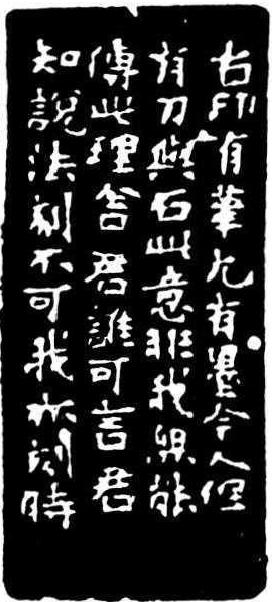 古印有筆尤有墨今人但
有刀與石此意非我無能
傳此理舍君誰可言君
知說法刻不可我亦刻時